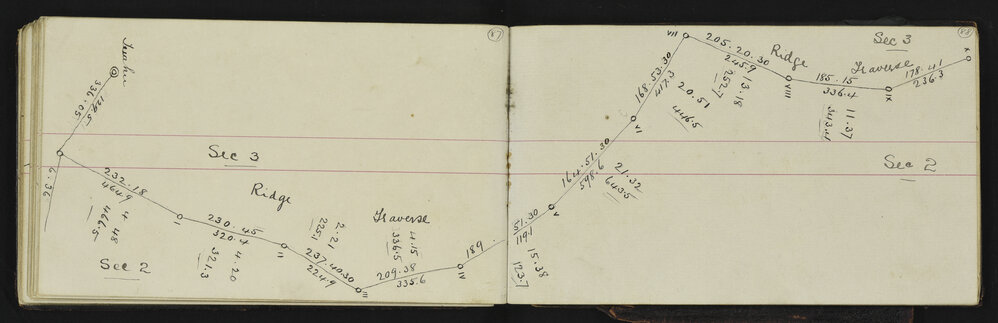 87
336.05
129.5
6.36
Sec 3
232.18
464.9
4 48
466.5
I
Ridge
230.45
320.4
4.20
321.3
II
Sec 2
2.21
225.1
237.40.30
224.9
III
Traverse
4.15
336.5
209.38
335.6
IV
189
88
Sec 3
VII
205.20.30
245.9
13.18
252.7
Ridge
VIII
Traverse
185.15
336.4
11.37
343.4
IX
178.41
236.3
X
168.53.30
417.3
20.51
446.5
VI
Sec 2
164.51.30
598.6
21.32
643.5
V
51.30
119.1
15.38
123.7